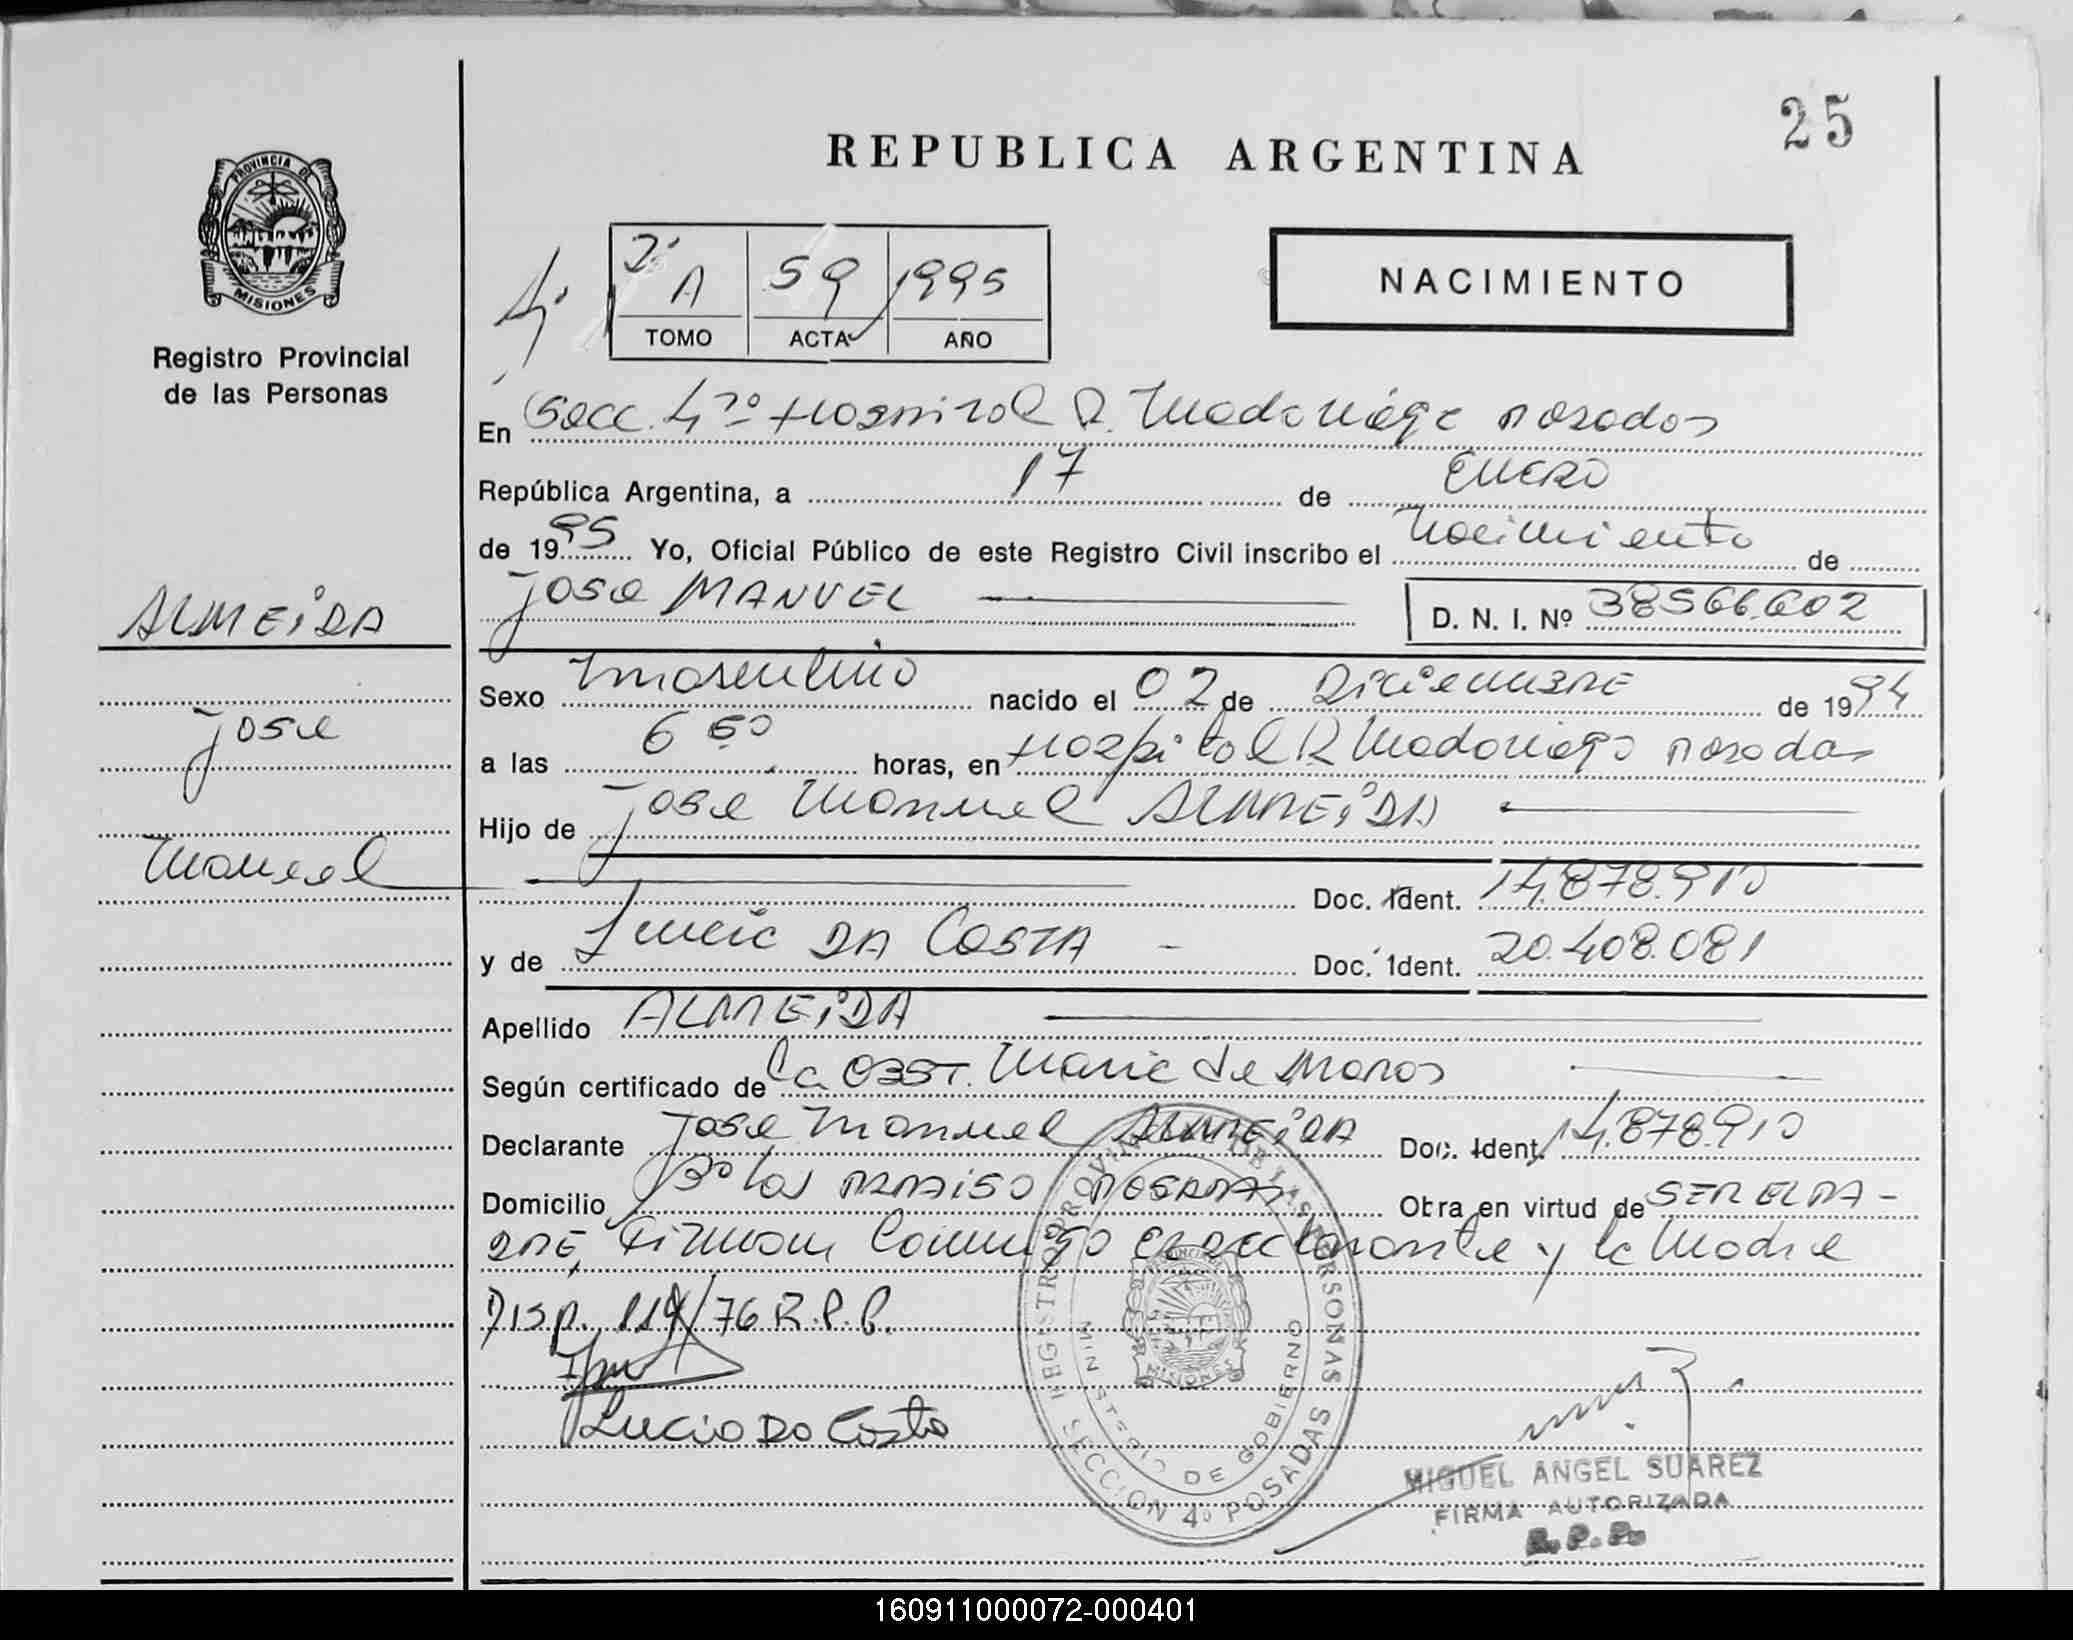 25
REPUBLICA ARGENTINA
PROVINCIA DE
MISIONES
Registro Provincial
de las Personas
4º
2º A 59 1995
TOMO ACTA AÑO
NACIMIENTO
En Secc. 4º Hospital R. Madariaga Posadas
República Argentina, a 17 de Enero
de 1995 Yo, Oficial Público de este Registro Civil inscribo el Nacimiento de
Jose MANUEL D. N. I. Nº 38566.602
ALMEIDA
Jose
Manuel
Sexo Masculino nacido el 02 de Diciembre de 1994
a las 6 50 horas, en Hospital R Madariaga Posadas
Hijo de Jose Manuel ALMEIDA
Doc. Ident. 14.878.910
y de Lucia DA COSTA - Doc. Ident. 20.408.081
Apellido ALMEIDA
Según certificado de la OBST. Maria de Maros
Declarante Jose Manuel ALMEIDA Doc. Ident. 14.878.910
Domicilio Bº los PARAISO POSADAS Obra en virtud de SER EL PA-
DRE, Firman Conmigo el declarante y la Madre
DISP. 119/76 R.P.P.
Lucia Da Costa
REGISTRO PROVINCIAL DE LAS PERSONAS
MINISTERIO DE GOBIERNO
SECCION 4º POSADAS
MISIONES
MIGUEL ANGEL SUAREZ
FIRMA AUTORIZADA
R. P. P.
160911000072-000401